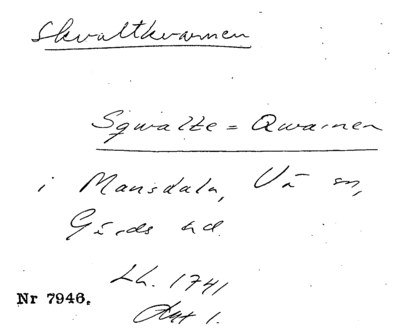 Skvaltkvarnen
Sqwalte = Qwarnen
i Mansdala, Vä sn,
Gärds hd.
Lh. 1741
Akt 1.
Nr 7946.